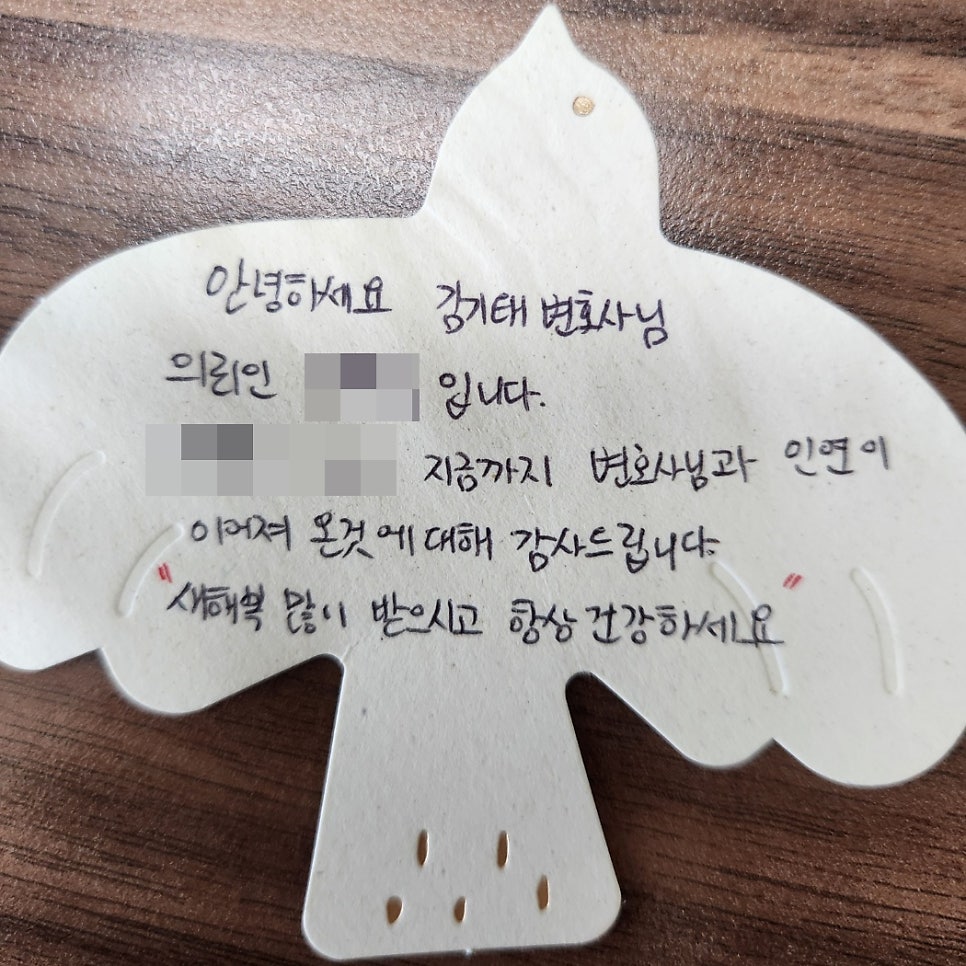 안녕하세요 김기태 변호사님
의뢰인 입니다.
지금까지 변호사님과 인연이
이어져 온것에 대해 감사드립니다.
"새해복 많이 받으시고 항상 건강하세요"